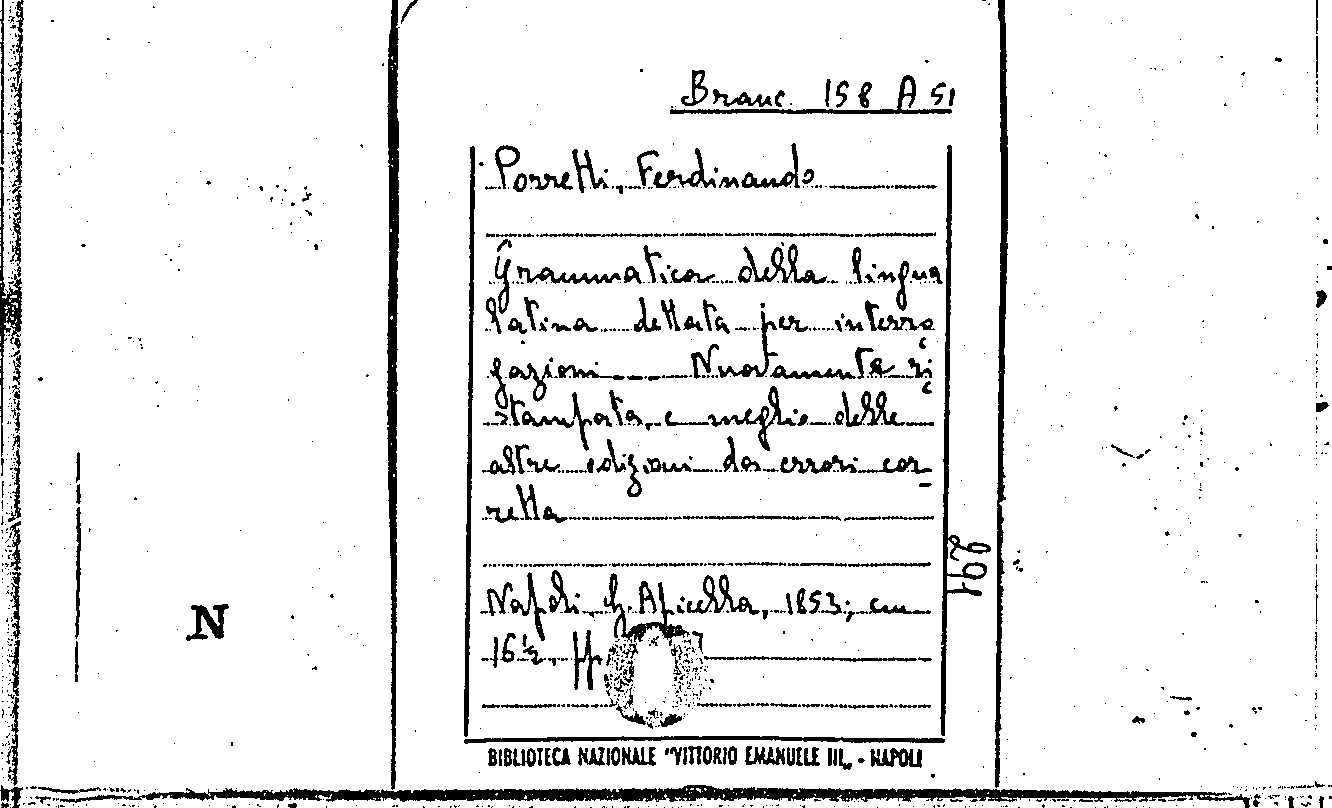 Branc. 158 A 51
Porretti, Ferdinando
Grammatica della lingua
latina dettata per interro
gazioni... Nuovamente ri
stampata, e meglio delle
altre edizioni da errori cor_
retta
Napoli, G. Apicella, 1853; cm
16½, pp.
291
N
BIBLIOTECA NAZIONALE "VITTORIO EMANUELE III„ - NAPOLI